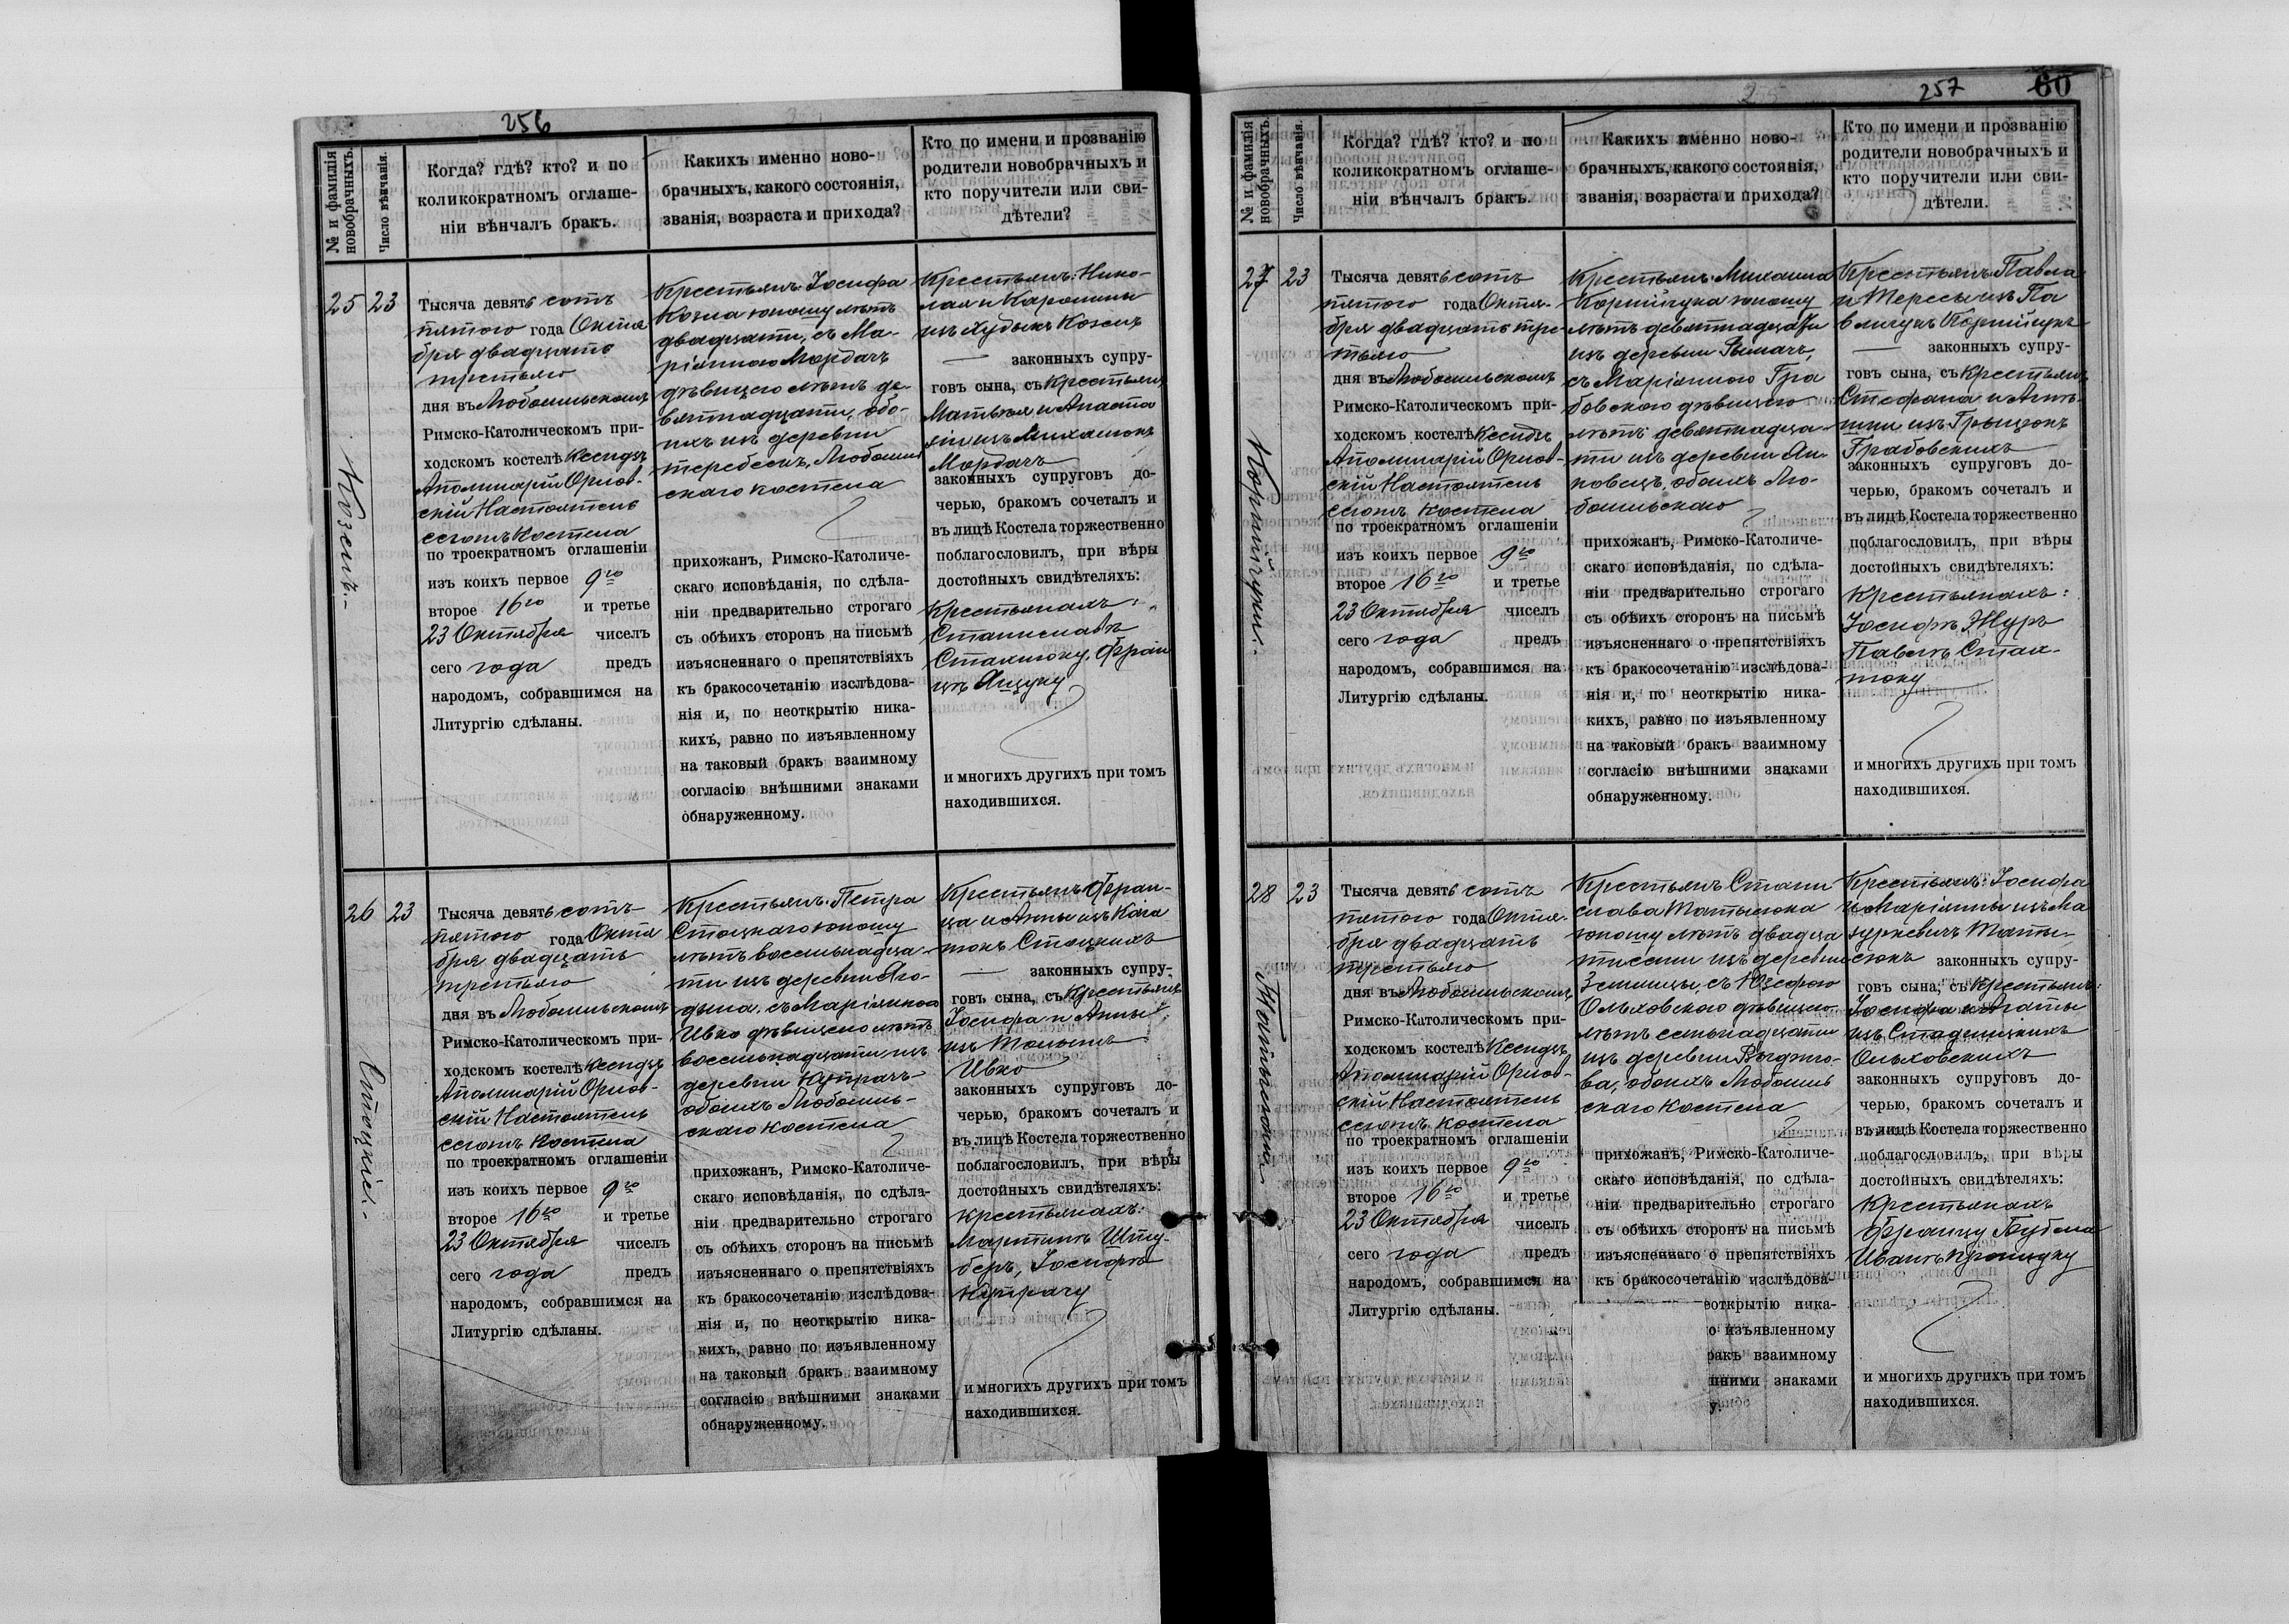 256
№ и фамилія
новобрачныхъ.
Число вѣнчанія.
Когда? гдѣ? кто? и по
коликократномъ оглаше-
ніи вѣнчалъ бракъ.
Какихъ именно ново-
брачныхъ, какого состоянія,
званія, возраста и прихода?
Кто по имени и прозванію
родители новобрачныхъ и
кто поручители или сви-
дѣтели?
25
23
Козелъ.
Тысяча девять сотъ
пятого года Октя
бря двадцать
третьяго
дня въ Любомльскомъ
Римско-Католическомъ при-
ходскомъ костелѣ Ксендзъ
Аполинарій Орлов-
скій Настоятель
сегожъ Костела
по троекратномъ оглашеніи
изъ коихъ первое 9го
второе 16го и третье
23 Октября чиселъ
сего года предъ
народомъ, собравшимся на
Литургію сдѣланы.
Крестьянъ: Іосифа
Козла юношу лѣтъ
двадцати, съ Ма-
ріянною Мордачъ
дѣвицею лѣтъ де-
вятнадцати, обо-
ихъ изъ деревни
Теребеекъ, Любомль
скаго костела
прихожанъ, Римско-Католиче-
скаго исповѣданія, по сдѣла-
ніи предварительно строгаго
съ обѣихъ сторонъ на письмѣ
изъясненнаго о препятствіяхъ
къ бракосочетанію изслѣдова-
нія и, по неоткрытію ника-
кихъ, равно по изъявленному
на таковый бракъ взаимному
согласію внѣшними знаками
обнаруженному.
Крестьянъ: Нико-
лая и Каролины
изъ Худыхъ Козелъ
законныхъ супру-
говъ сына, съ Крестьянъ
Матвѣя и Анаста
сіи изъ Михалюкъ
Мордачъ
законныхъ супруговъ до-
черью, бракомъ сочеталъ и
въ лицѣ Костела торжественно
поблагословилъ, при вѣры
достойныхъ свидѣтеляхъ:
Крестьянахъ:
Станиславъ
Стахнюку, Фран
цъ Ящуку
и многихъ другихъ при томъ
находившихся.
26
23
Стоцкіе.
Тысяча девять сотъ
пятого года Октя
бря двадцать
третьяго
дня въ Любомльскомъ
Римско-Католическомъ при-
ходскомъ костелѣ Ксендзъ
Аполинарій Орлов-
скій Настоятель
сегожъ Костела
по троекратномъ оглашеніи
изъ коихъ первое 9го
второе 16го и третье
23 Октября чиселъ
сего года предъ
народомъ, собравшимся на
Литургію сдѣланы.
Крестьянъ: Петра
Стоцкаго юношу
лѣтъ восемнадца-
ти изъ деревни Яго-
дына, съ Маріянною
Ивко дѣвицею лѣтъ
восемьнадцати изъ
деревни Купрачъ
обоихъ Любомль-
скаго костела
прихожанъ, Римско-Католиче-
скаго исповѣданія, по сдѣла-
ніи предварительно строгаго
съ обѣихъ сторонъ на письмѣ
изъясненнаго о препятствіяхъ
къ бракосочетанію изслѣдова-
нія и, по неоткрытію ника-
кихъ, равно по изъявленному
на таковый бракъ взаимному
согласію внѣшними знаками
обнаруженному.
Крестьянъ: Фран-
ца и Анны изъ
Стоцкихъ
законныхъ супру-
говъ сына, съ Крестьянъ
Іосифа и Анны
изъ
Ивко
законныхъ супруговъ до-
черью, бракомъ сочеталъ и
въ лицѣ Костела торжественно
поблагословилъ, при вѣры
достойныхъ свидѣтеляхъ:
Крестьянахъ:
Мартинъ Шту-
беръ, Іосифъ
Купрачу
и многихъ другихъ при томъ
находившихся.
257
60
№ и фамилія
новобрачныхъ.
Число вѣнчанія.
Когда? гдѣ? кто? и по
коликократномъ оглаше-
ніи вѣнчалъ бракъ.
Какихъ именно ново-
брачныхъ, какого состоянія,
званія, возраста и прихода?
Кто по имени и прозванію
родители новобрачныхъ и
кто поручители или сви-
дѣтели.
27
23
Корнійчуки.
Тысяча девять сотъ
пятого года Октя-
бря двадцать тре-
тьяго
дня въ Любомльскомъ
Римско-Католическомъ при-
ходскомъ костелѣ Ксендзъ
Аполинарій Орлов-
скій Настоятель
сегожъ Костела
по троекратномъ оглашеніи
изъ коихъ первое 9го
второе 16го и третье
23 Октября чиселъ
сего года предъ
народомъ, собравшимся на
Литургію сдѣланы.
Крестьянъ: Михаила
Корнійчука юношу
лѣтъ девятнадцати
изъ деревни Рымачъ,
съ Маріянною Гра
бовскою дѣвицею
лѣтъ девятнадца-
ти изъ деревни Ян-
ковецъ, обоихъ Лю-
бомльскаго
прихожанъ, Римско-Католиче-
скаго исповѣданія, по сдѣла-
ніи предварительно строгаго
съ обѣихъ сторонъ на письмѣ
изъясненнаго о препятствіяхъ
къ бракосочетанію изслѣдова-
нія и, по неоткрытію ника-
кихъ, равно по изъявленному
на таковый бракъ взаимному
согласію внѣшними знаками
обнаруженному.
Крестьянъ Павла
и Тересы изъ Па
вличукъ Корнійчукъ
законныхъ супру-
говъ сына, съ Крестьянъ
Стефана и
изъ Грыцюкъ
Грабовскихъ
законныхъ супруговъ до-
черью, бракомъ сочеталъ и
въ лицѣ Костела торжественно
поблагословилъ, при вѣры
достойныхъ свидѣтеляхъ:
Крестьянахъ:
Іосифъ Журъ
Павелъ Стах-
нюку
и многихъ другихъ при томъ
находившихся.
28
23
Тысяча девять сотъ
пятого года Октя-
бря двадцать
третьяго
дня въ Любомльскомъ
Римско-Католическомъ при-
ходскомъ костелѣ Ксендзъ
Аполинарій Орлов-
скій Настоятель
сегожъ Костела
по троекратномъ оглашеніи
изъ коихъ первое 9го
второе 16го и третье
23 Октября чиселъ
сего года предъ
народомъ, собравшимся на
Литургію сдѣланы.
Крестьянъ Стани
слава
юношу лѣтъ двадца
тисеми изъ деревни
Землицы, съ Юзефою
Ольховскою дѣвицею
лѣтъ семьнадцати
изъ деревни
обоихъ Любомль
скаго костела
прихожанъ, Римско-Католиче-
скаго исповѣданія, по сдѣла-
ніи предварительно строгаго
съ обѣихъ сторонъ на письмѣ
изъясненнаго о препятствіяхъ
къ бракосочетанію изслѣдова-
еоткрытію ника-
о изъявленному
ракъ взаимному
шними знаками
у.
Крестьянъ: Іосифа
и Маріянны изъ Ма
зуркевичъ
законныхъ супру-
говъ сына, съ Крестьянъ:
Іосифа и Агаты
изъ
Ольховскихъ
законныхъ супруговъ до-
черью, бракомъ сочеталъ и
въ лицѣ Костела торжественно
поблагословилъ, при вѣры
достойныхъ свидѣтеляхъ:
Крестьянахъ
Францу
Иванъ
и многихъ другихъ при томъ
находившихся.